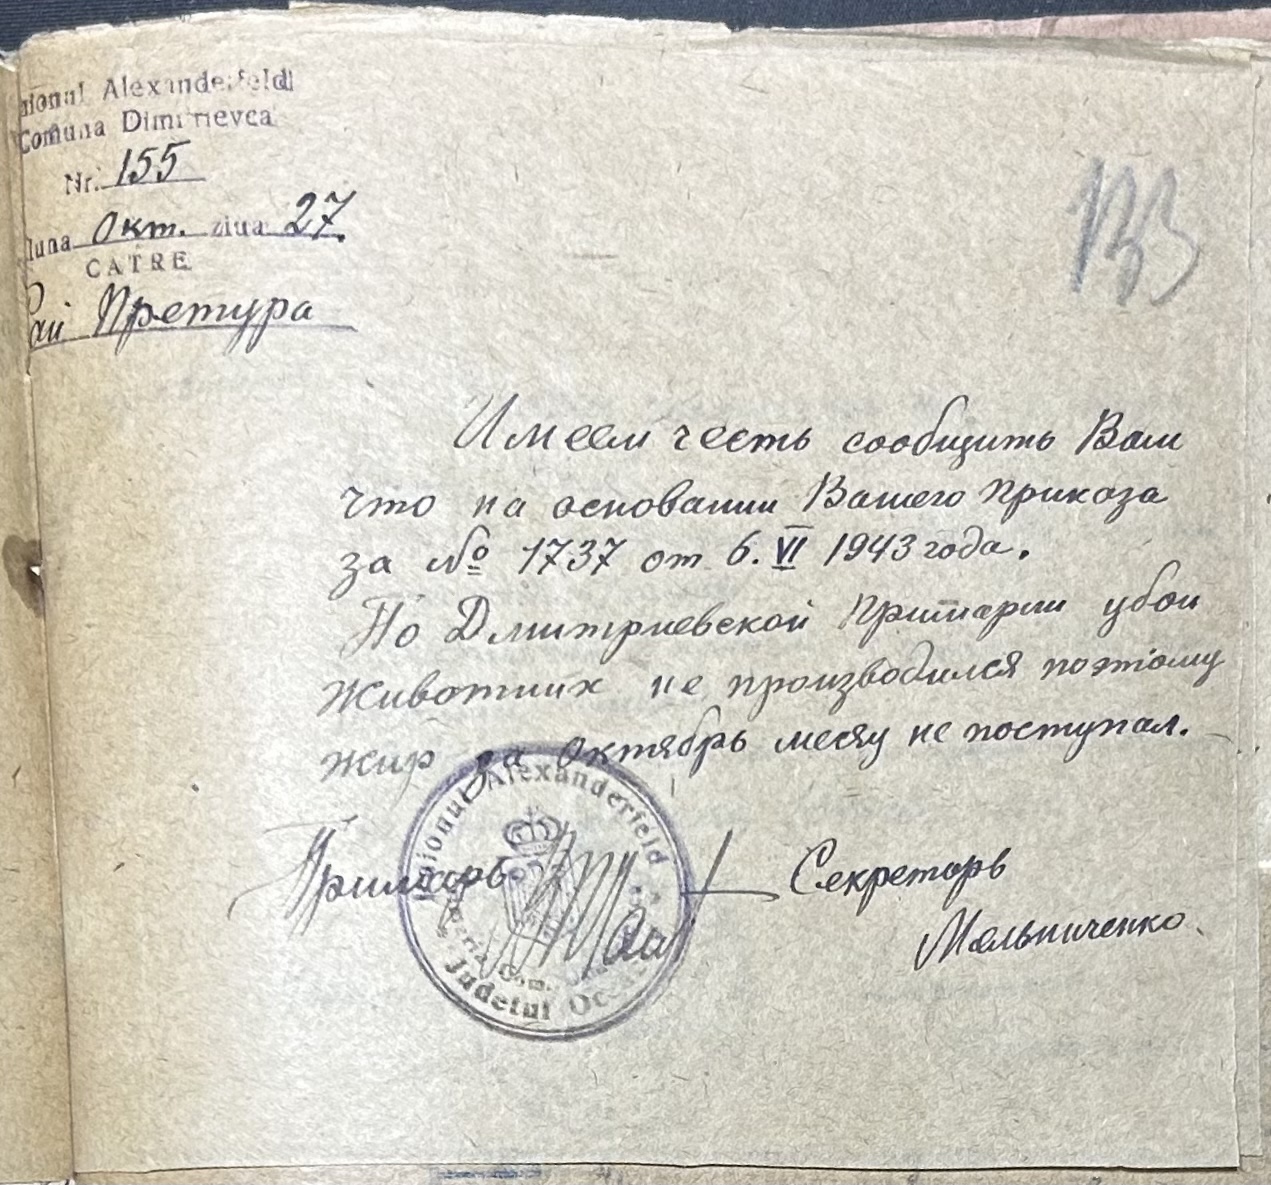 Raionul Alexanderfeld
Comuna Dimitrievca
Nr. 155
luna Окт. ziua 27.
CATRE
Рай Претура
133
Имеем честь сообщить Вам
что на основании Вашего Приказа
за № 1737 от 6. VI 1943 года.
По Дмитриевской Примарии убои
животних не производился поэтому
жир за Октябрь месяц не поступал.
Примарь
Секреторь
Мельниченко.
Raionul Alexanderfeld
Com.
Judetul